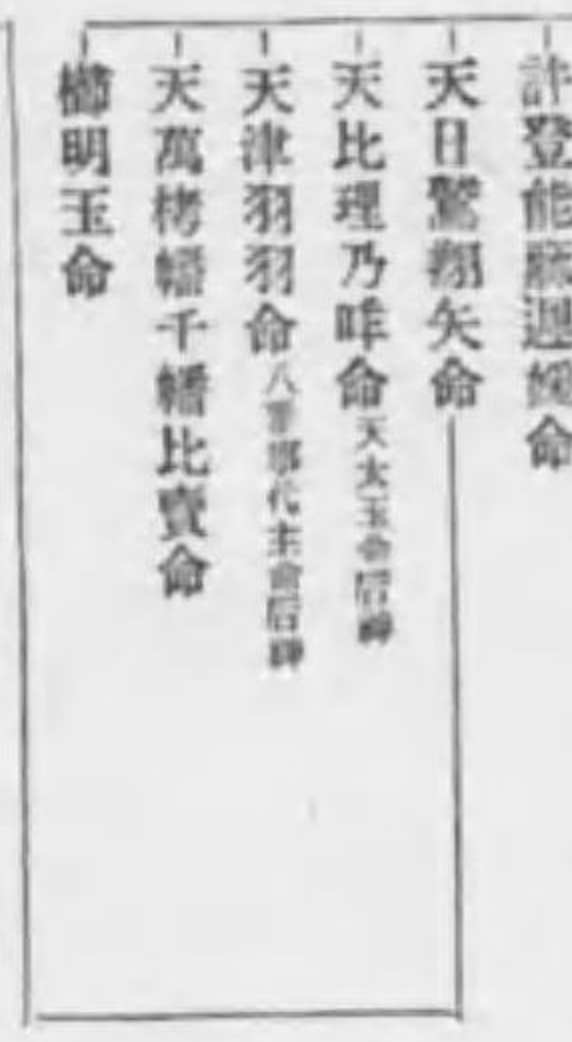 許登能麻遅媛命
天日鷲翔矢命
天比理乃咩命 天太玉命后神
天津羽羽命 八重事代主命后神
天萬栲幡千幡比賣命
櫛明玉命